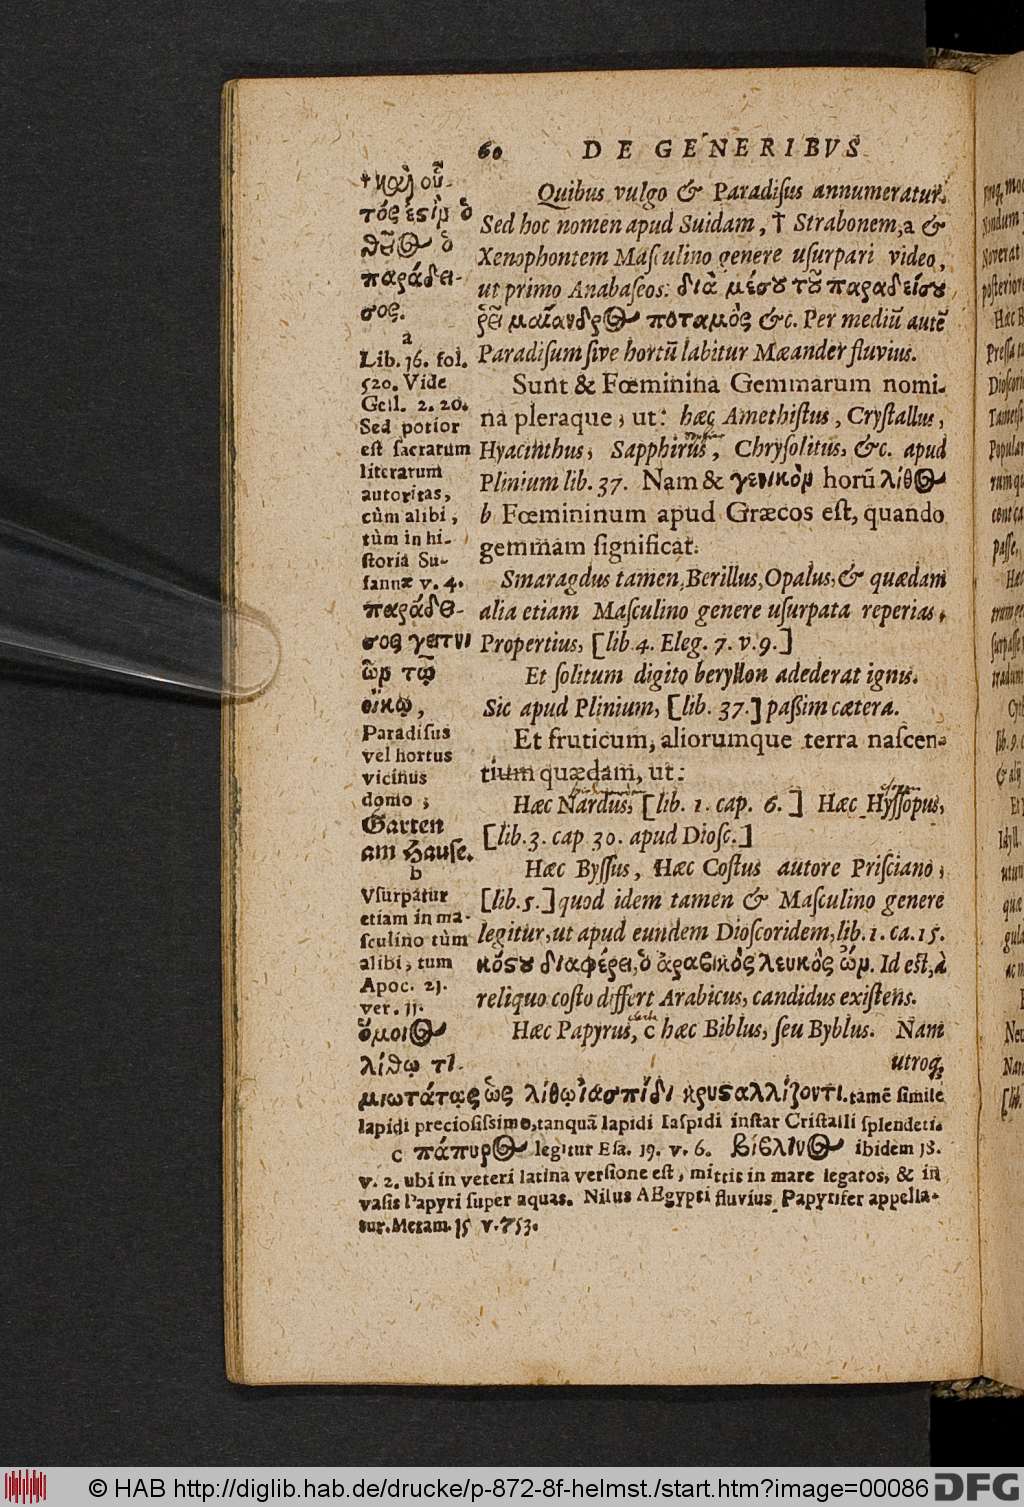 60 DE GENERIBVS
Quibus vulgo & Paradiſus annumeratur.
Sed hoc nomen apud Suidam, † Strabonem,a &
Xenophontem Maſculino genere uſurpari video,
ut primo Anabaſeos: διὰ μέσου τοῦ παραδείσου
ῥεῖ μαίανδρος ποταμὸς &c. Per mediū autē
Paradiſum ſive hortū labitur Mæander fluvius.
Sunt & Fœminina Gemmarum nomi-
na pleraque, ut: hæc Amethiſtus, Cryſtallus,
Hyacinthus, Sapphirus, Chryſolitus, &c. apud
Plinium lib. 37. Nam & γενικὸν horū λίθος
b Fœmininum apud Græcos eſt, quando
gemmam ſignificat.
Smaragdus tamen, Berillus, Opalus, & quædam
alia etiam Maſculino genere uſurpata reperias.
Propertius, [lib.4. Eleg. 7. v.9.]
Et ſolitum digito beryllon adederat ignis.
Sic apud Plinium, [lib. 37.] paßim cætera.
Et fruticum, aliorumque terra naſcen-
tium quædam, ut:
Hæc Nardus, [lib. 1. cap. 6.] Hæc Hyſſopus,
[lib.3. cap 30. apud Dioſc.]
Hæc Byſſus, Hæc Coſtus autore Priſciano,
[lib.5.] quod idem tamen & Maſculino genere
legitur, ut apud eundem Dioſcoridem, lib. 1. ca. 15.
κόϛου διαφέρει, ὁ ἀραβικὸς λευκὸς ὢν. Id eſt, à
reliquo coſto differt Arabicus, candidus exiſtens.
Hæc Papyrus, c hæc Biblus, ſeu Byblus. Nam
utroq́;
† καὶ οὗ-
τός ἐϛιν ὁ
θεῖος ὁ
παράδει-
σος.
a
Lib. 16. fol.
520. Vide
Gell. 2. 20.
Sed potior
eſt ſacrarum
literarum
autoritas,
cùm alibi,
tùm in hi-
ſtoria Su-
ſannæ v. 4.
παράδει-
σος γειτνι
ῶν τῷ
οἴκῳ,
Paradiſus
vel hortus
vicinus
domo;
Garten
am Hauſe.
b
Vſurpatur
etiam in ma-
ſculino tùm
alibi, tum
Apoc. 21.
ver. 11.
ὅμοιος
λίθῳ τι-
μιωτάτῳ ὡς λίθῳ ἰάσπιδι κρυϛαλλίζοντι. tamē ſimile
lapidi precioſiſsimo, tanquā lapidi Iaſpidi inſtar Criſtalli ſplendēti.
c πάπυρος legitur Eſa. 19. v. 6. βίβλινος ibidem 18.
v. 2. ubi in veteri latina verſione eſt, mittit in mare legatos, & in
vaſis Papyri ſuper aquas. Nilus AEgypti fluvius Papyrifer appella-
tur. Metam. 15 v. 753.
© HAB http://diglib.hab.de/drucke/p-872-8f-helmst./start.htm?image=00086 DFG